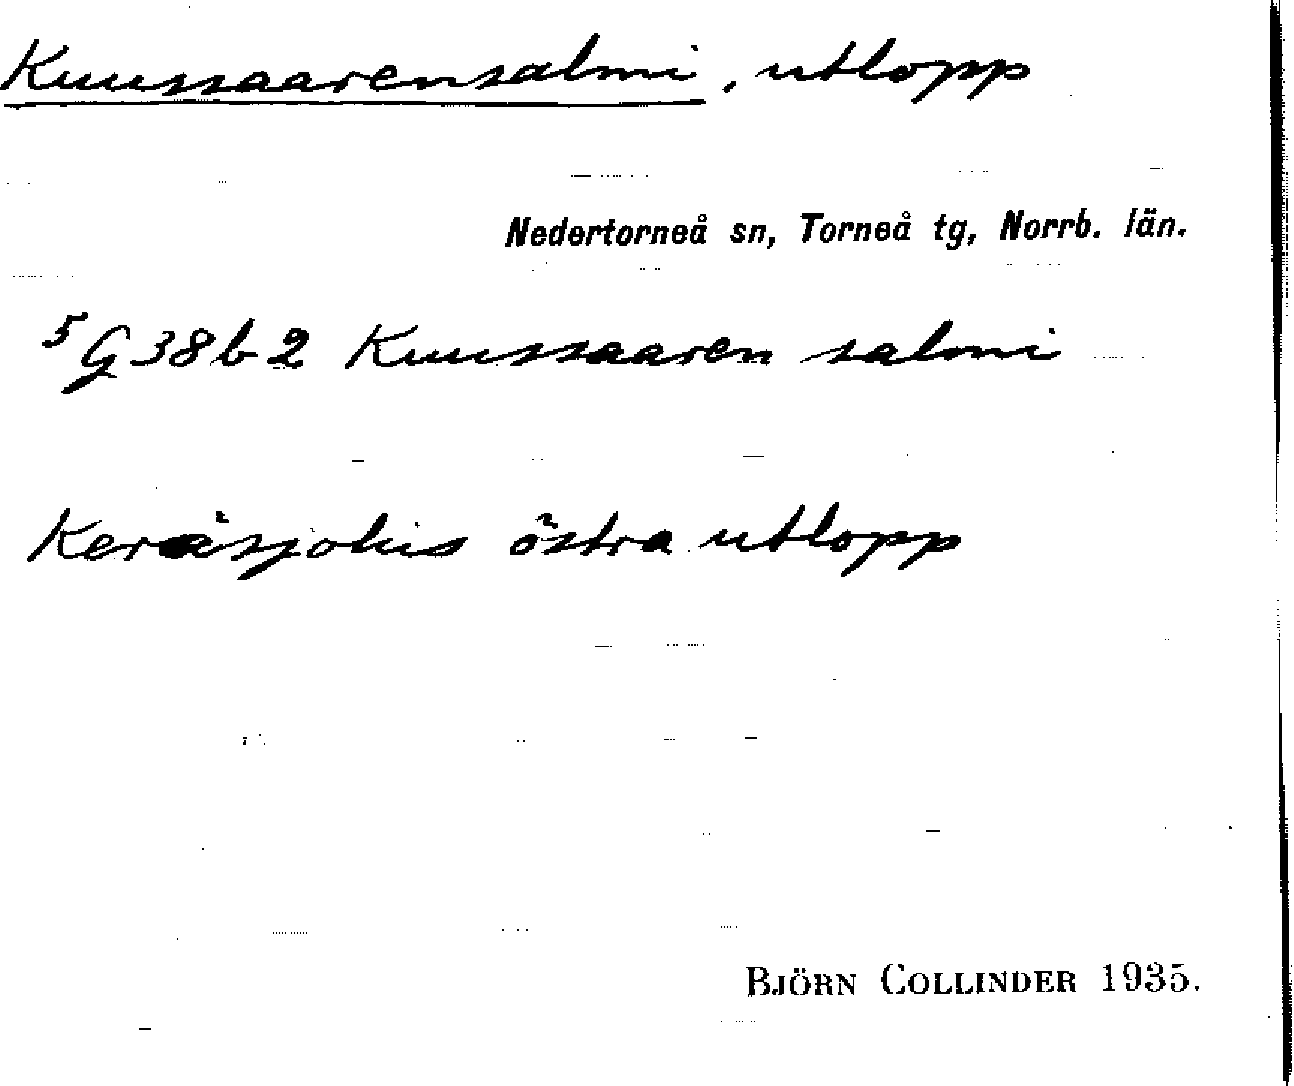 Kuussaarensalmi, utlopp
Nedertorneå sn, Torneå tg, Norrb. län.
5 G38b2 Kuussaaren salmi
Keräsjokis östra utlopp
BJÖRN COLLINDER 1935.